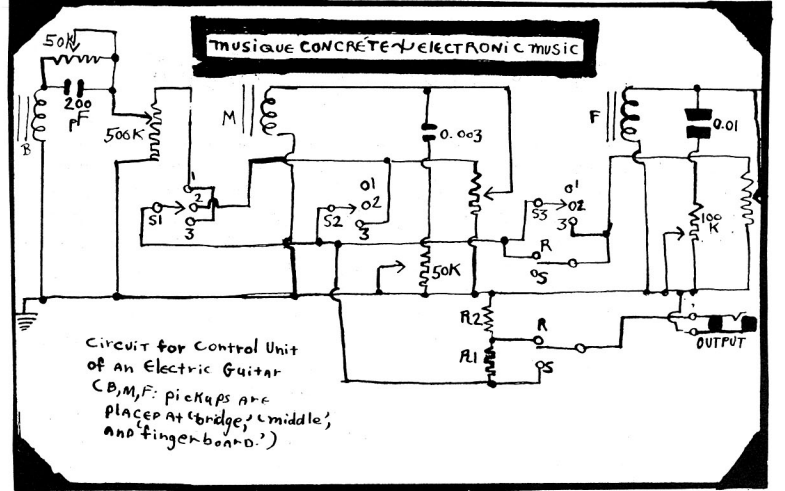 musique concrète & electronic music
50K
200
pF
B
500K
1
2
3
S1
M
0.003
S2
01
02
3
50K
F
0.01
S3
0'
02
3
100
K
R
0S
R2
R1
R
0S
OUTPUT
circuit for control Unit
of an Electric Guitar
(B,M,F: pickups are
placed at 'bridge,' 'middle',
and 'fingerboard.')